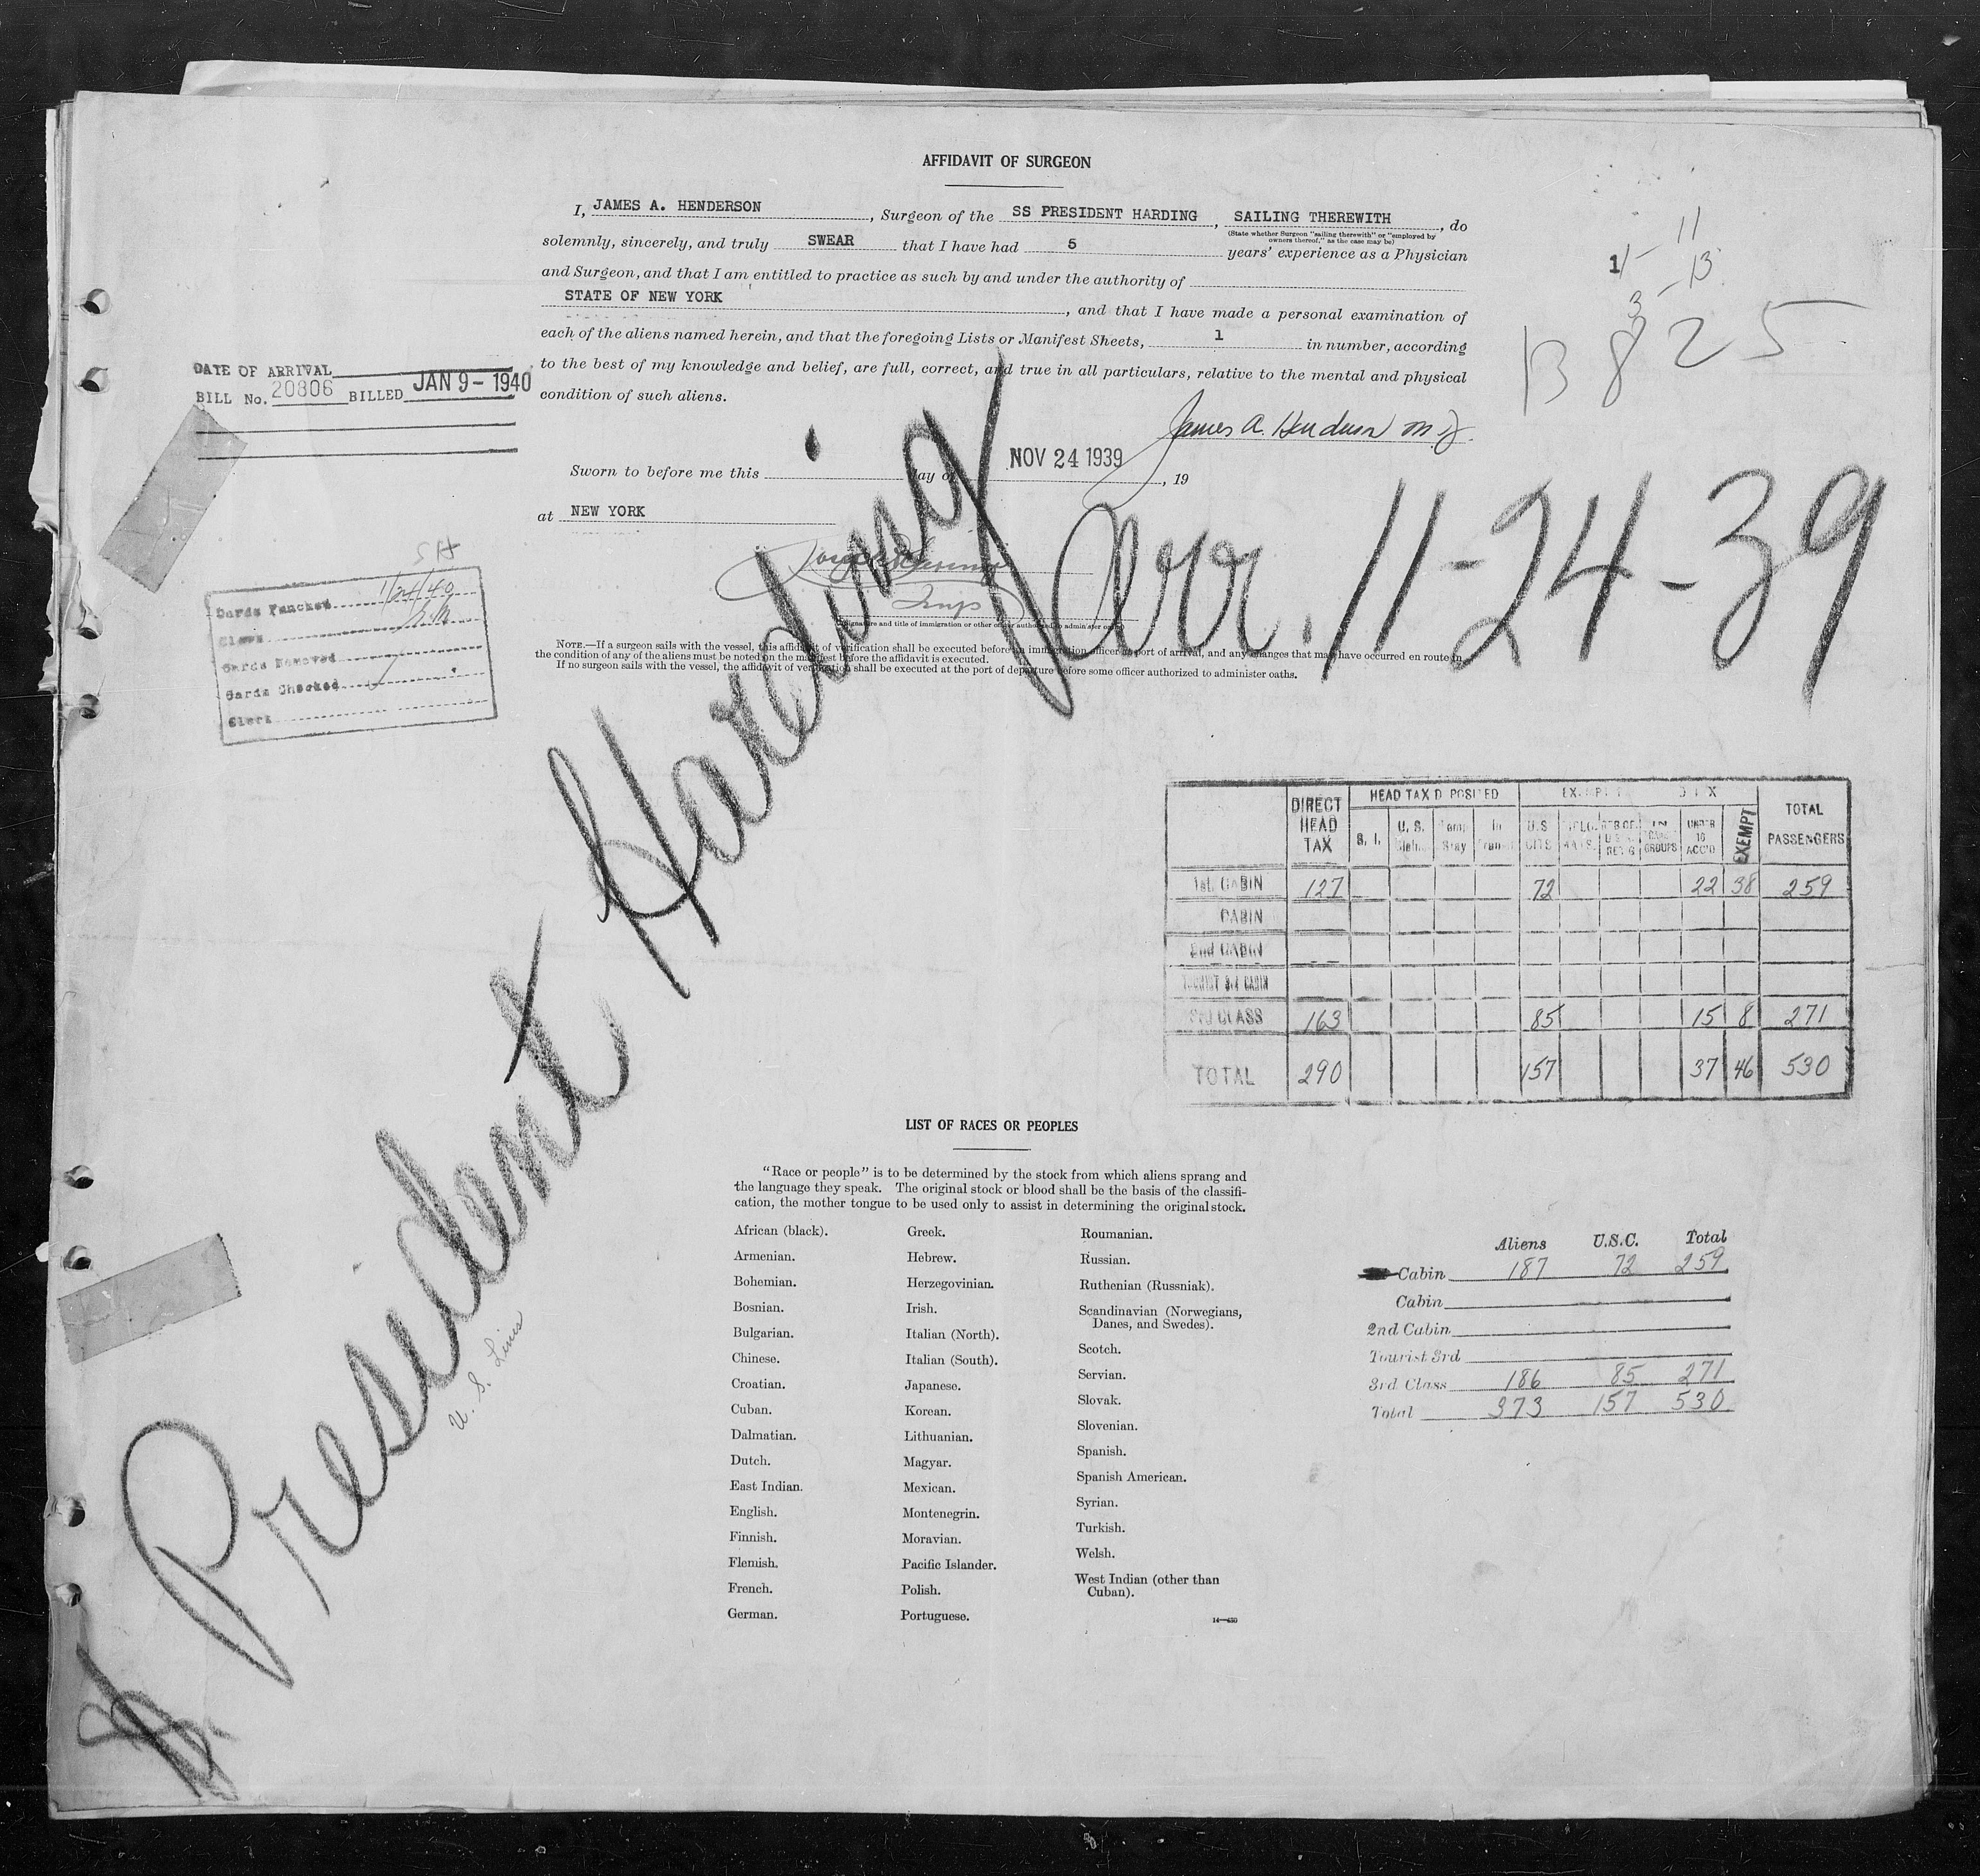 AFFIDAVIT OF SURGEON
I, JAMES A. HENDERSON, Surgeon of the SS PRESIDENT HARDING, SAILING THEREWITH, do
(State whether Surgeon "sailing therewith" or "employed by
owners thereof," as the case may be)
solemnly, sincerely, and truly SWEAR that I have had 5 years' experience as a Physician
and Surgeon, and that I am entitled to practice as such by and under the authority of
STATE OF NEW YORK, and that I have made a personal examination of
each of the aliens named herein, and that the foregoing Lists or Manifest Sheets, 1 in number, according
to the best of my knowledge and belief, are full, correct, and true in all particulars, relative to the mental and physical
condition of such aliens.
11
1 - 13
3
B 825
DATE OF ARRIVAL
BILL No. 20806 BILLED JAN 9 - 1940
James A. Henderson M.D.
Sworn to before me this day of NOV 24 1939, 19
at NEW YORK
Arr. 11-24-39
SH
Cards Punched 1/24/40
Clerk
Cards Removed
Cards Checked
Clerk
Insp
(Signature and title of immigration or other officer authorized to administer oaths)
NOTE.—If a surgeon sails with the vessel, this affidavit of verification shall be executed before an immigration officer at port of arrival, and any changes that may have occurred en route in
the condition of any of the aliens must be noted on the manifest before the affidavit is executed.
If no surgeon sails with the vessel, the affidavit of verification shall be executed at the port of departure before some officer authorized to administer oaths.
President Harding
U. S. Lines
DIRECT HEAD TAX HEAD TAX D POSITED TOTAL PASSENGERS
S. I. U. S. In U.S CITS IN GROUPS UNDER 16 ACC'D EXEMPT
1st. CABIN 127 72 22 38 259
CABIN
2nd CABIN
TOURIST 3rd CABIN
3rd CLASS 163 85 15 8 271
TOTAL 290 157 37 46 530
LIST OF RACES OR PEOPLES
"Race or people" is to be determined by the stock from which aliens sprang and
the language they speak. The original stock or blood shall be the basis of the classifi-
cation, the mother tongue to be used only to assist in determining the original stock.
African (black).
Armenian.
Bohemian.
Bosnian.
Bulgarian.
Chinese.
Croatian.
Cuban.
Dalmatian.
Dutch.
East Indian.
English.
Finnish.
Flemish.
French.
German.
Greek.
Hebrew.
Herzegovinian.
Irish.
Italian (North).
Italian (South).
Japanese.
Korean.
Lithuanian.
Magyar.
Mexican.
Montenegrin.
Moravian.
Pacific Islander.
Polish.
Portuguese.
Roumanian.
Russian.
Ruthenian (Russniak).
Scandinavian (Norwegians,
Danes, and Swedes).
Scotch.
Servian.
Slovak.
Slovenian.
Spanish.
Spanish American.
Syrian.
Turkish.
Welsh.
West Indian (other than
Cuban).
Aliens U.S.C. Total
Cabin 187 72 259
Cabin
2nd Cabin
Tourist 3rd
3rd Class 186 85 271
Total 373 157 530